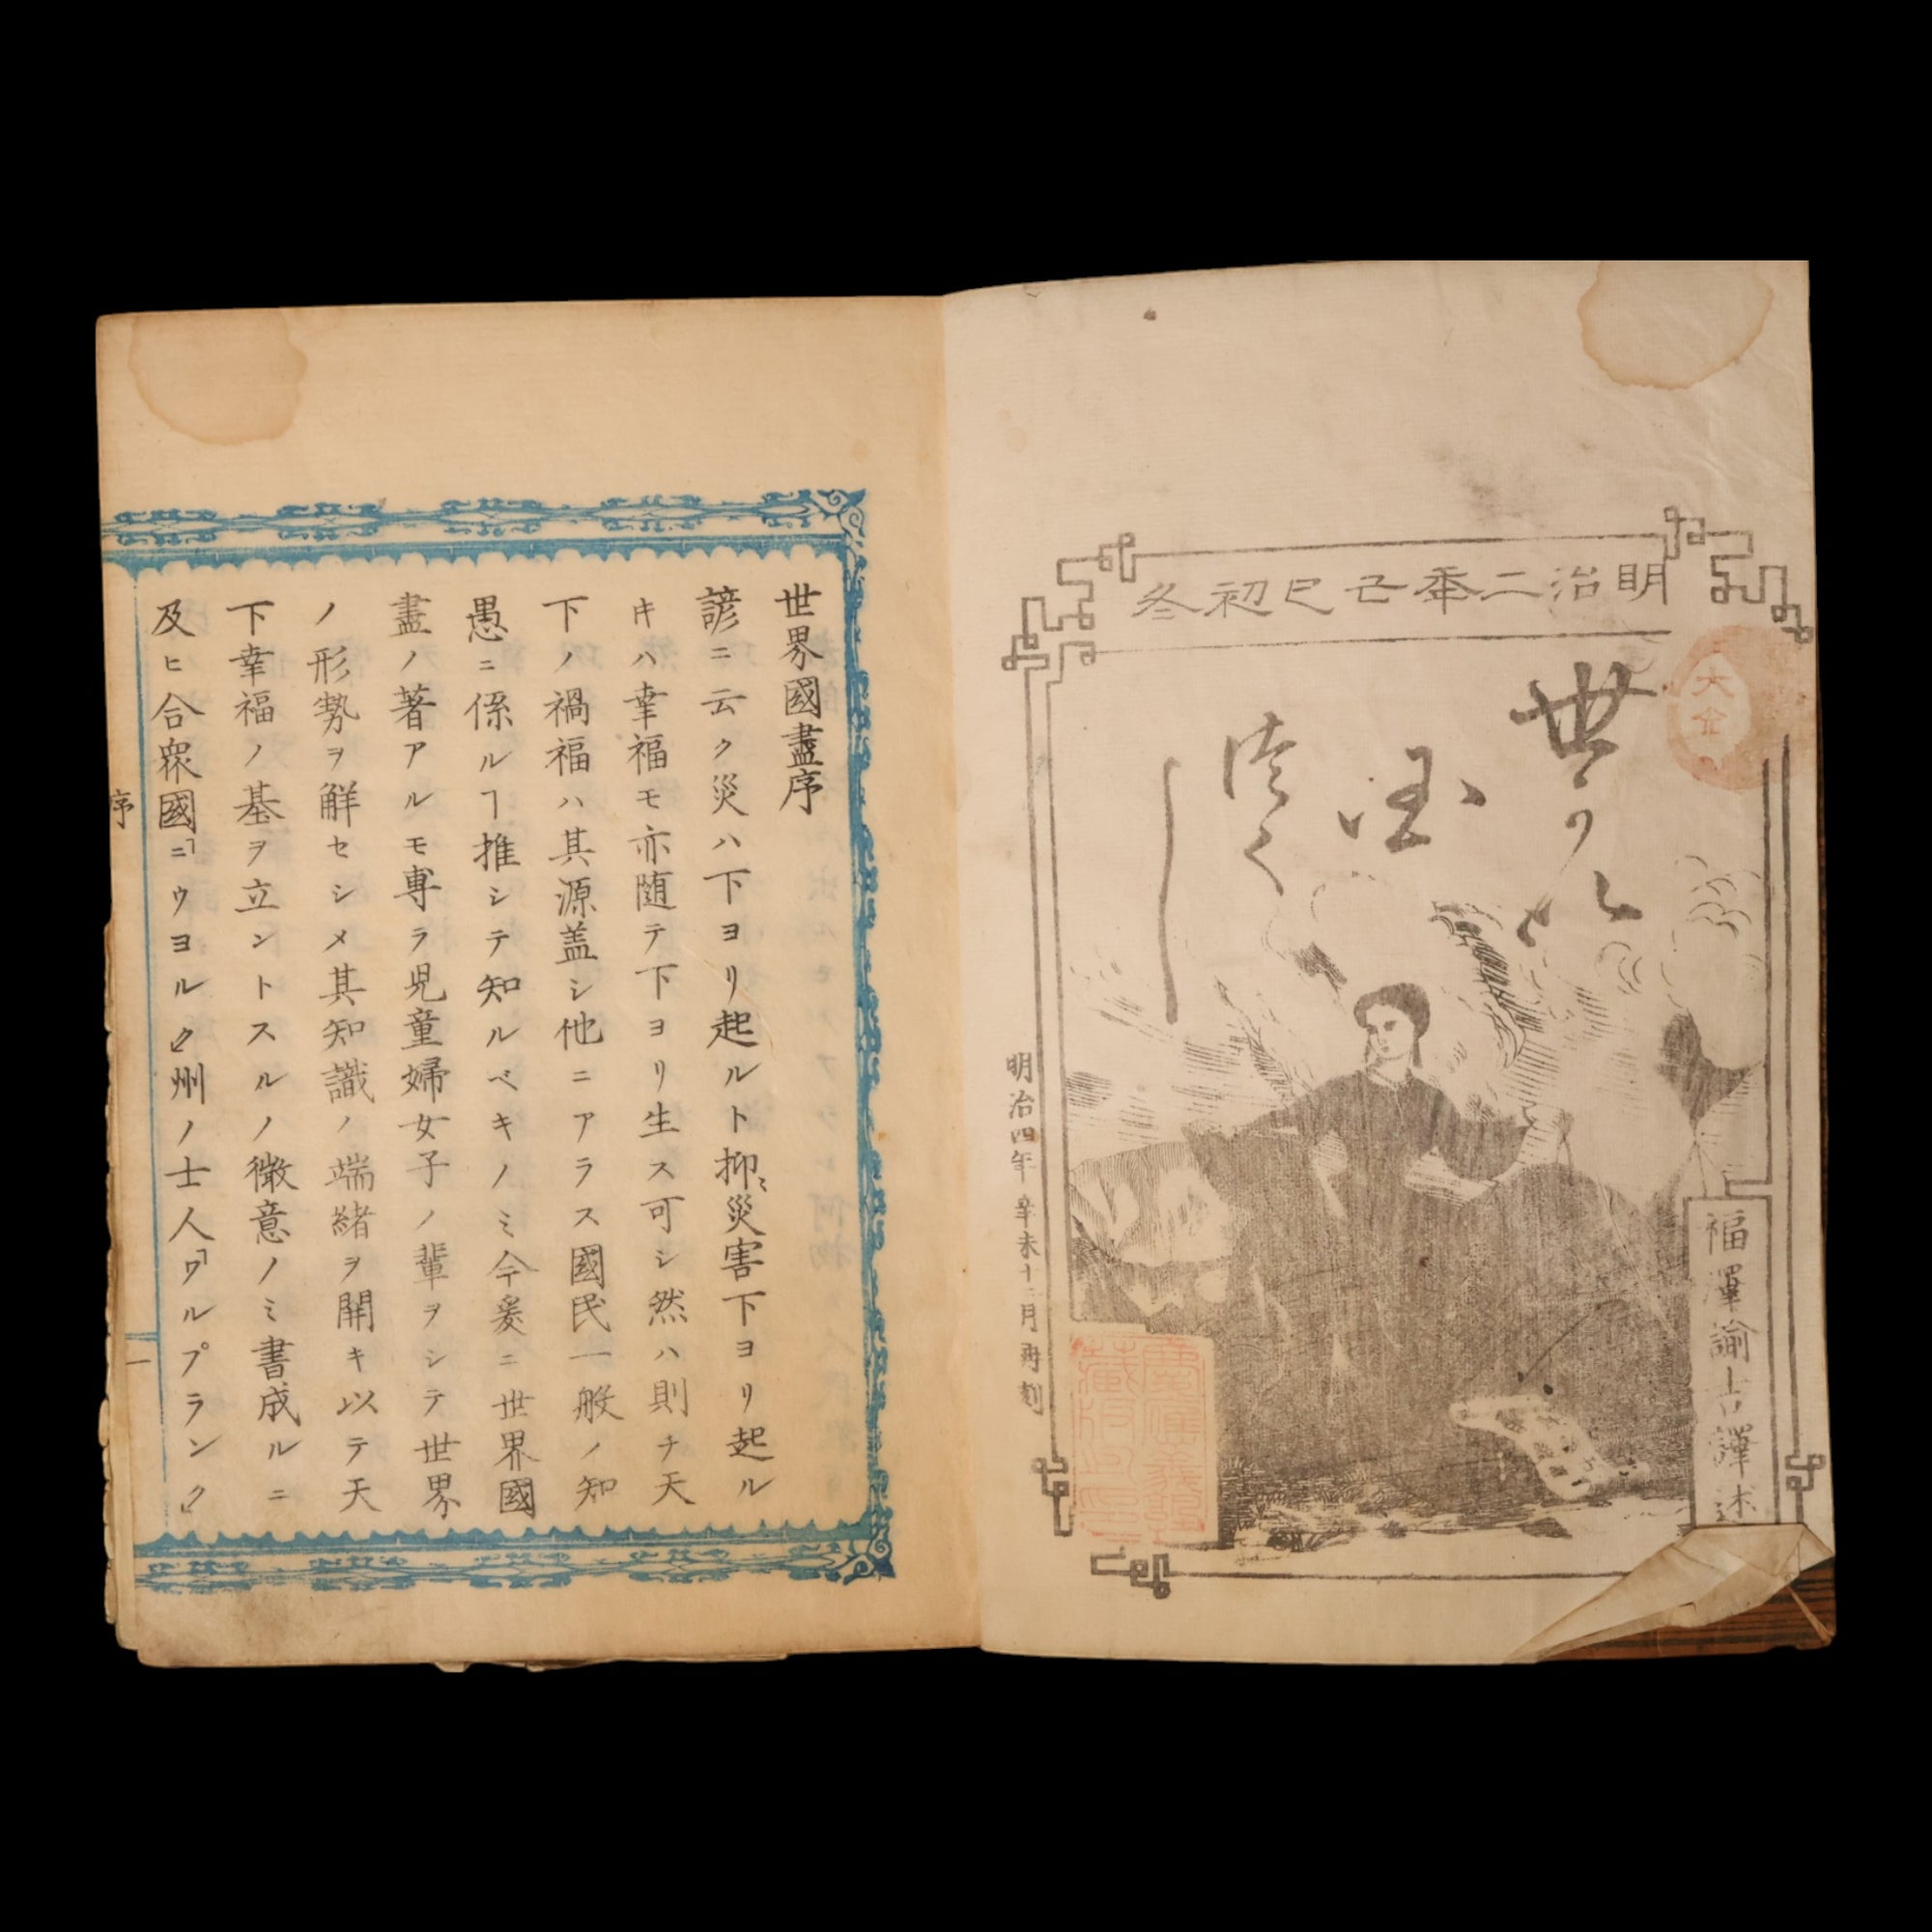 明治二年己巳初冬
世界
国
尽し
福澤諭吉譯述
明治四年辛未十二月再刻
慶應義塾
蔵版之印
世界國盡序
諺ニ云ク災ハ下ヨリ起ルト抑〻災害下ヨリ起ル
キハ幸福モ亦随テ下ヨリ生ス可シ然ハ則チ天
下ノ禍福ハ其源盖シ他ニアラス國民一般ノ知
愚ニ係ルヿ推シテ知ルベキノミ今爰ニ世界國
盡ノ著アルモ専ラ児童婦女子ノ輩ヲシテ世界
ノ形勢ヲ解セシメ其知識ノ端緒ヲ開キ以テ天
下幸福ノ基ヲ立ントスルノ微意ノミ書成ルニ
及ヒ合衆國「ニウヨルク」州ノ士人「ワルプランク」
序
一